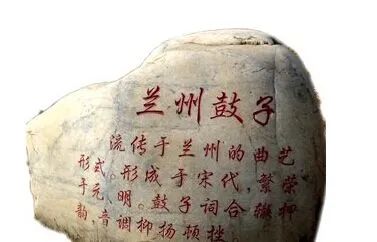 兰州鼓子
流传于兰州的曲艺
形式。形成于宋代，繁荣
于元、明。鼓子词合辙押
韵，音调抑扬顿挫。